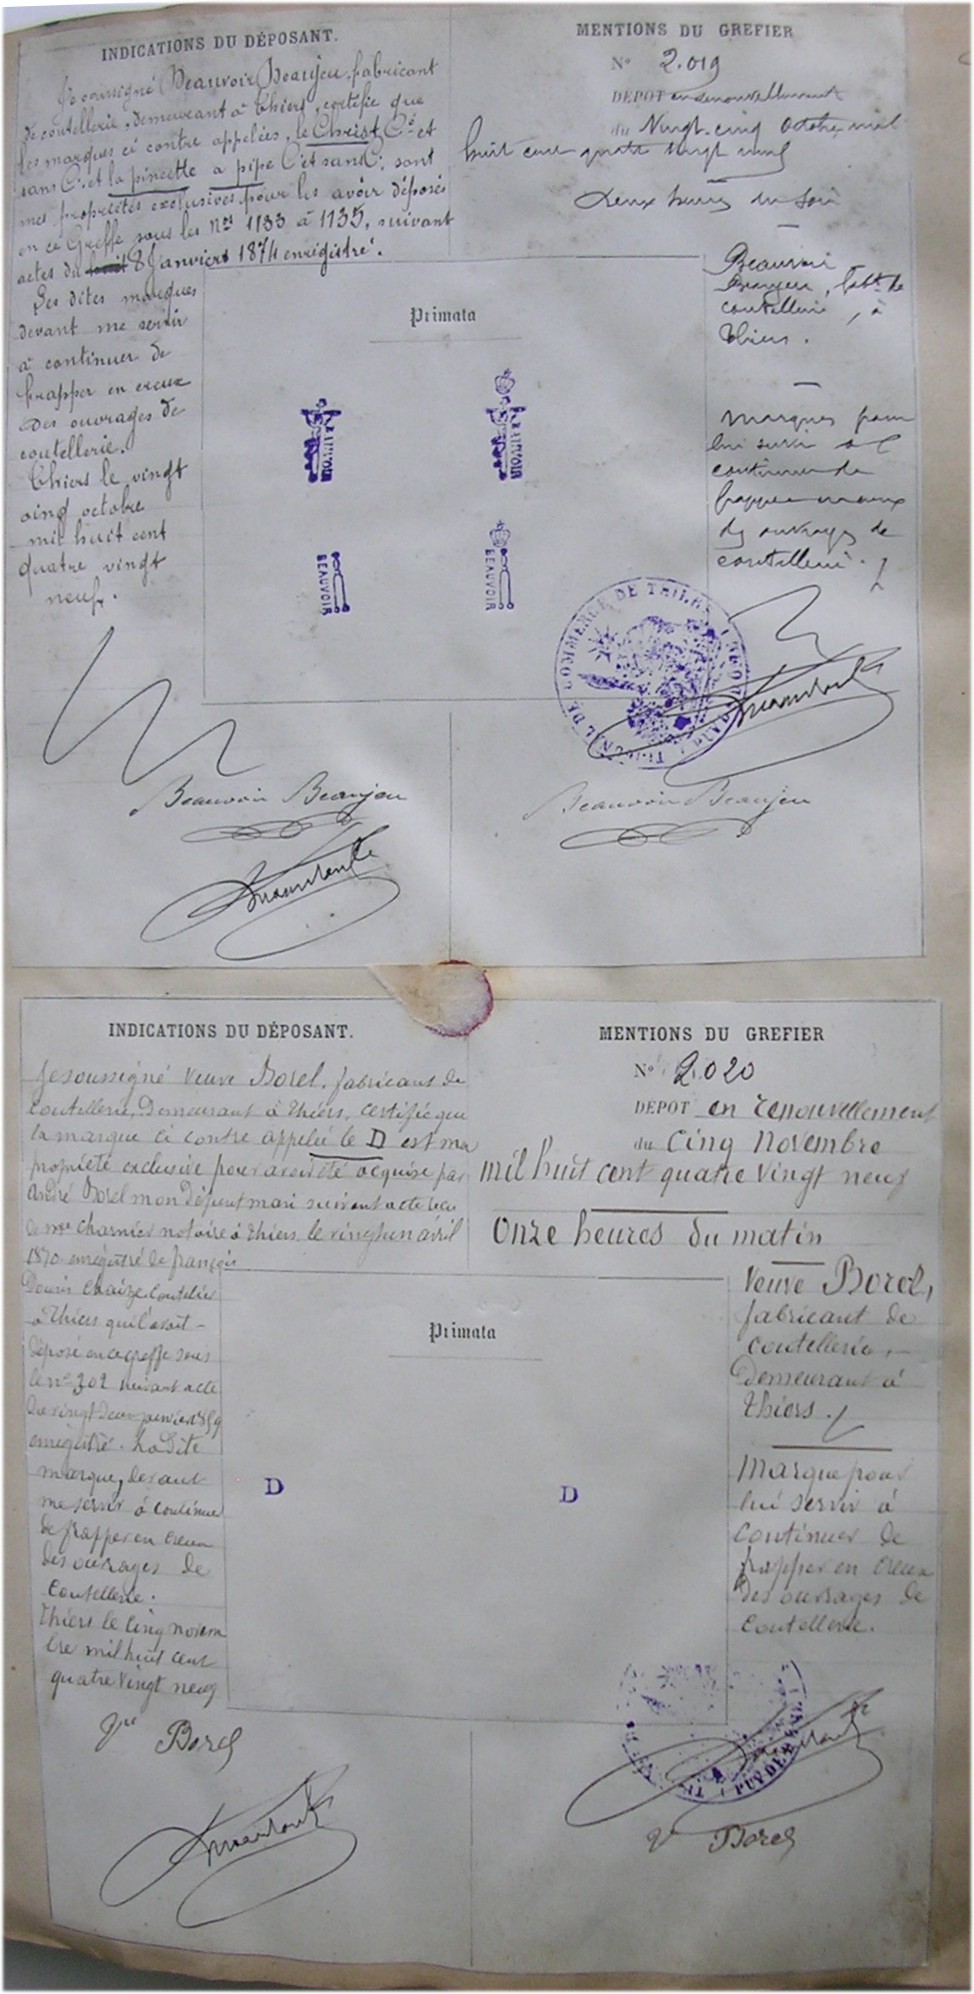 INDICATIONS DU DÉPOSANT.
Je soussigné Beauvoir Beaujeu, fabricant
de coutellerie, demeurant à Thiers, certifie que
les marques ci contre appelées, le Christ Cé et
sans C. et la pincette a pipe C. et sans C. sont
mes propriétés exclusives pour les avoir déposés
en ce Greffe sous les Nos 1133 à 1135, suivant
actes du 8 Janvier 1874 enregistré.
Les dites marques
devant me servir
à continuer de
frapper en creux
des ouvrages de
coutellerie.
Thiers le vingt
cinq octobre
mil huit cent
quatre vingt
neuf.
Beauvoir Beaujeu
MENTIONS DU GREFIER
No 2.019
DÉPOT en renouvellement
du Vingt-cinq Octobre mil
huit cent quatre vingt neuf
Deux heures du soir
Beauvoir
Beaujeu, fabt. de
coutellerie, à
Thiers.
Marques pour
lui servir à
continuer de
frapper en creux
des ouvrages de
coutellerie.
Primata
BEAUVOIR
BEAUVOIR
BEAUVOIR
BEAUVOIR
TRIBUNAL DE COMMERCE DE THIERS
Beauvoir Beaujeu
INDICATIONS DU DÉPOSANT.
Je soussigné Veuve Borel, fabricant de
coutellerie, Demeurant à Thiers, certifie que
la marque ci contre appelée le D est ma
propriété exclusive pour avoir été acquise par
André Borel mon défunt mari suivant acte reçu
de me Charnier notaire à Thiers le vingt un avril
1870 enregistré de françois
Douris Chaize Coutelier
à Thiers qui l'avait
déposé en ce greffe sous
le no 302 suivant acte
du vingt deux janvier 1859
enregistré. La dite
marque, devant
me servir à continuer
de frapper en creux
des ouvrages de
Coutellerie.
Thiers le Cinq novem
bre mil huit cent
quatre vingt neuf
Vve Borel
MENTIONS DU GREFIER
No 2.020
DÉPOT en renouvellement
du Cinq Novembre
mil huit cent quatre vingt neuf
Onze heures du matin
Veuve Borel,
fabricant de
coutellerie,
Demeurant à
Thiers.
Marque pour
lui servir à
continuer de
frapper en creux
des ouvrages de
Coutellerie.
Primata
D D
PUY DE
Ve Borel